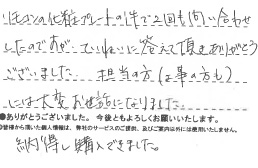 リモコンの化粧プレートの件で2回も問い合わせ
したのですが、ていねいに答えて頂きありがとう
ございました。担当の方（工事の方も）
には大変お世話になりました。
●ありがとうございました。今後ともよろしくお願いいたします。
◎皆様から頂いた個人情報は、弊社のサービスのご提供、及びご案内以外には使用いたしません。
納得し購入できました。